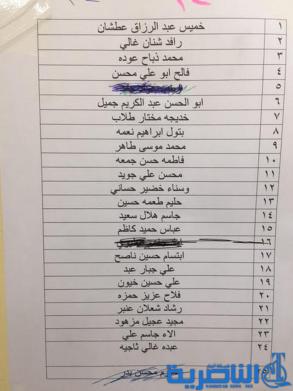 ١ خميس عبد الرزاق عطشان
٢ رافد شنان غالي
٣ محمد ذباح عوده
٤ فالح ابو علي محسن
٥
٦ ابو الحسن عبد الكريم جميل
٧ خديجه مختار طلاب
٨ بتول ابراهيم نعمه
٩ محمد موسى طاهر
١٠ فاطمه حسن جمعه
١١ محسن علي جويد
١٢ وسناء خضير حساني
١٣ حليم طعمه حسين
١٤ جاسم هلال سعيد
١٥ عباس حميد كاظم
١٦
١٧ ابتسام حسين ناصح
١٨ علي جبار عبد
١٩ علي حسين خيون
٢٠ فلاح عزيز حمزه
٢١ رشاد شعلان عنبر
٢٢ مجيد عجيل مزهود
٢٣ الاء جاسم علي
٢٤ عبده غالي ثاجيه
٢٥ محسن بدر
الناصرية